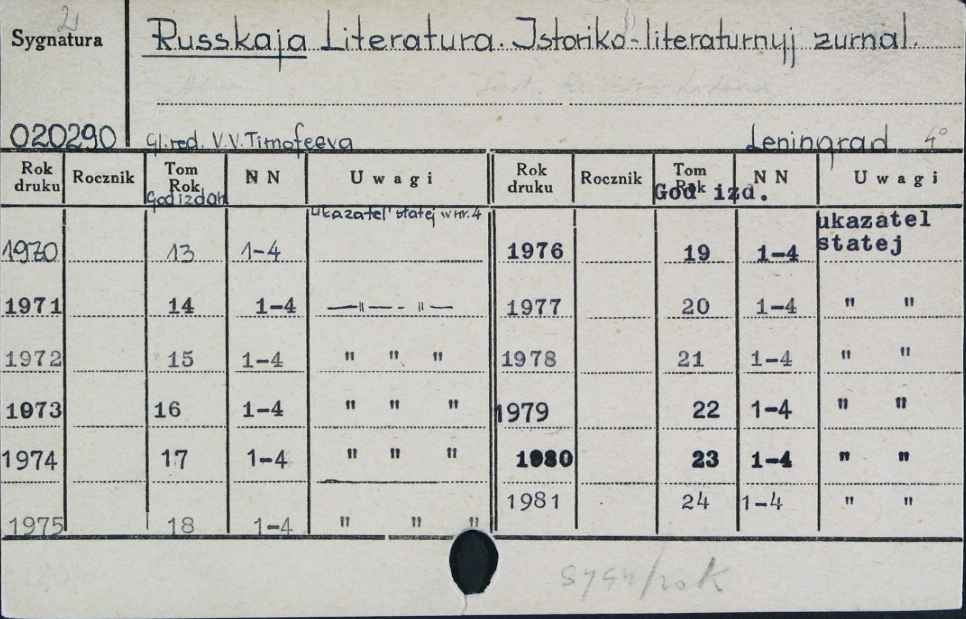 Sygnatura Russkaja Literatura. Istoriko-literaturnyj zurnal.
020290 Gl. red. V.V. Timofeeva Leningrad 4°
Rok druku Rocznik Tom Rok N N Uwagi Rok druku Rocznik Tom Rok N N Uwagi
God izdan God izd.
1970 13 1-4 ukazatel' statej w nr. 4 1976 19 1-4 ukazatel statej
1971 14 1-4 —"—-"— 1977 20 1-4 " "
1972 15 1-4 " " " 1978 21 1-4 " "
1973 16 1-4 " " " 1979 22 1-4 " "
1974 17 1-4 " " " 1980 23 1-4 " "
1975 18 1-4 " " " 1981 24 1-4 " "
sygn/rok